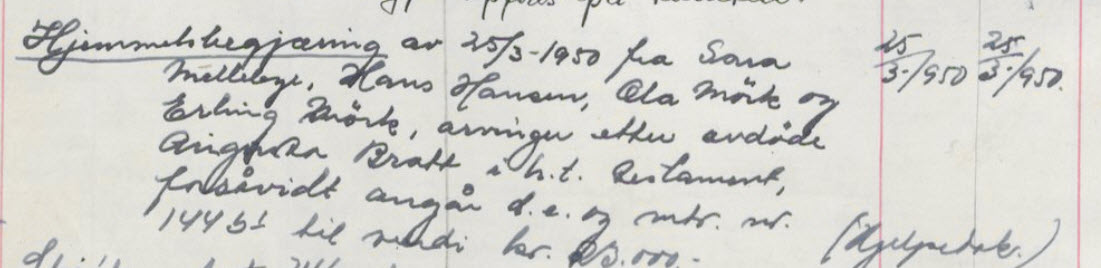 Hjemmelsbegjæring av 25/3-1950 fra Sara 25/3-1950 25/3-1950.
Hans Hansen, Ola Mörk og
Erling Mörk, arvinger etter avdöde
Augusta Bratt i h.t. testament,
forsåvidt angår d.e. og mtr. nr.
1443 til verdi kr. 23.000.- (Hjelpedok.)